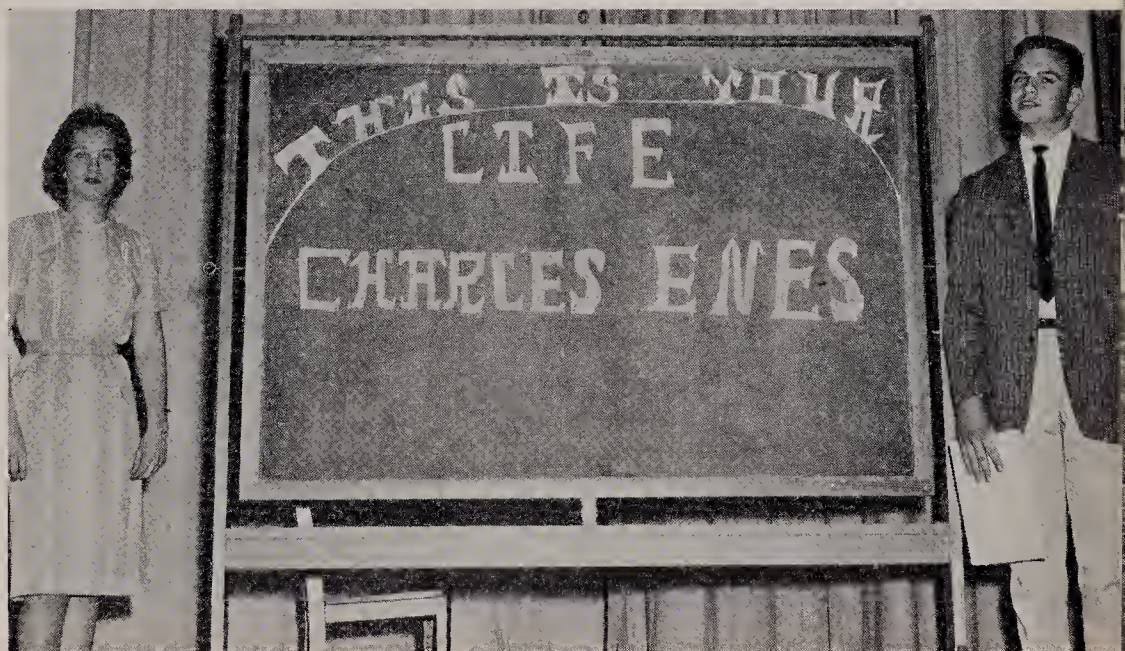 THIS IS YOUR
LIFE
CHARLES ENES